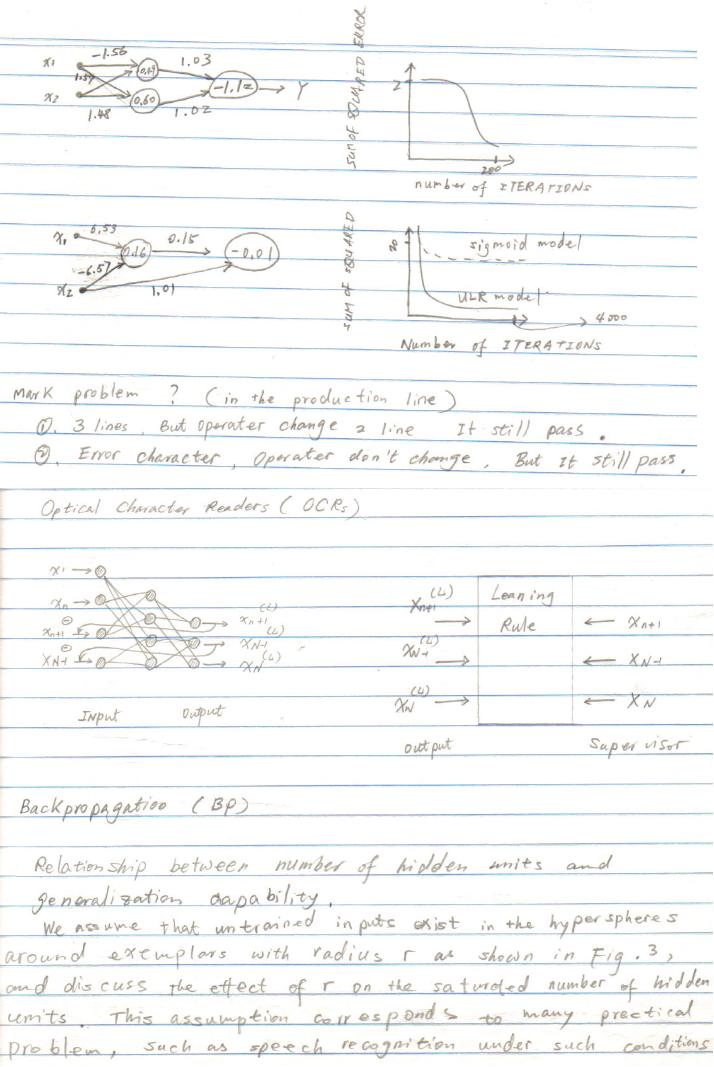 x1 -1.56 1.03
1.57 0.69 -1.12 Y
x2 0.60
1.48 1.02
SUM OF SQUARED ERROR
2
200
number of ITERATIONS
x1 6.53 0.15
0.16 -0.01
-6.57
x2 1.01
SUM OF SQUARED
20
sigmoid model
ULR model
4000
Number of ITERATIONS
Mark problem ? (in the production line)
①. 3 lines, But Operater change 2 line It still pass.
②. Error character, Operater don't change, But It still pass.
Optical Character Readers (OCRs)
x1
xn
xn+1 xn+1(L)
xN-1 xN-1(L)
xN(L)
Input Output
xn+1(L) Leaning
Rule xn+1
xN-1(L) xN-1
xN(L) xN
output Supervisor
Backpropagatioo (BP)
Relationship between number of hidden units and
generalization dapability.
We assume that untrained inputs exist in the hyperspheres
around exemplars with radius r as shown in Fig.3,
and discuss the effect of r on the saturated number of hidden
units. This assumption corresponds to many practical
problem, such as speech recognition under such conditions